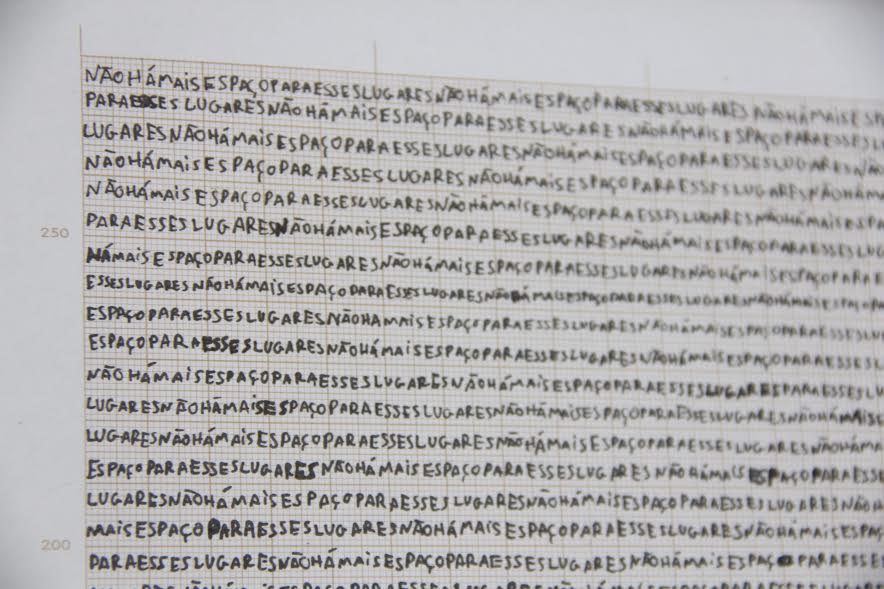 NÃOHÁMAISESPAÇOPARAESSESLUGARESNÃOHÁMAISESPAÇOPARAESSESLUGARES NÃOHÁMAISESPA
PARAESSES LUGARESNÃOHÁMAISESPAÇOPARAESSESLUGARESNÃOHÁMAISESPAÇOPARAESSESLU
LUGARESNÃOHÁMAISESPAÇOPARAESSESLUGARESNÃOHÁMAISESPAÇOPARAESSESLUGARESNÃO
NÃOHÁMAISESPAÇOPARAESSESLUGARESNÃOHÁMAISESPAÇOPARAESSESLUGARESNÃOHÁM
NÃOHÁMAIS ESPAÇOPARAESSESLUGARESNÃOHÁMAISESPAÇOPARAESSESLUGARESNÃOHÁMAISESPA
250 PARAESSESLUGARESNÃOHÁMAISESPAÇOPARAESSESLUGARESNÃOHÁMAISESPAÇOPARAESSESLUG
HÁMAISESPAÇOPARAESSESLUGARESNÃOHÁMAISESPAÇOPARAESSESLUGARESNÃOHÁMAISESPAÇOPARAE
ESSESLUGARESNÃOHÁMAISESPAÇOPARAESSESLUGARESNÃOHÁMAISESPAÇOPARAESSESLUGARESNÃOHÁMAISESPAÇOPA
ESPAÇOPARAESSESLUGARESNÃOHAMAISESPAÇOPARAESSESLUGARESNÃOHÁMAISESPAÇOPARAESSESL
ESPAÇOPARAESSESLUGARESNÃOHÁMAISESPAÇOPARAESSESLUGARESNÃOHÁMAISESPAÇOPARAESSESL
NÃOHÁMAISESPAÇOPARAESSESLUGARESNÃOHÁMAISESPAÇOPARAESSESLUGARESPARAESSESLU
LUGARESNÃOHÁMAISESPAÇOPARAESSESLUGARESNÃOHÁMAISESPAÇOPARAESSESLUGARESNÃOHÁMAIS
LUGARESNÃOHÁMAISESPAÇOPARAESSESLUGARESNÃOHÁMAISESPAÇOPARAESSESLUGARESNÃOHÁMA
ESPAÇOPARAESSESLUGARESNÃOHÁMAISESPAÇOPARAESSESLUGARESNÃOHÁMAISESPAÇOPARAESSE
LUGARESNÃOHÁMAISESPAÇOPARAESSESLUGARESNÃOHÁMAISESPAÇOPARAESSESLUGARESNÃOH
MAISESPAÇOPARAESSESLUGARESNÃOHÁMAISESPAÇOPARAESSESLUGARESNÃOHÁMAISESPAÇ
200 PARAESSESLUGARESNÃOHÁMAISESPAÇOPARAESSESLUGARESNÃOHÁMAISESPAÇOPARAESSE